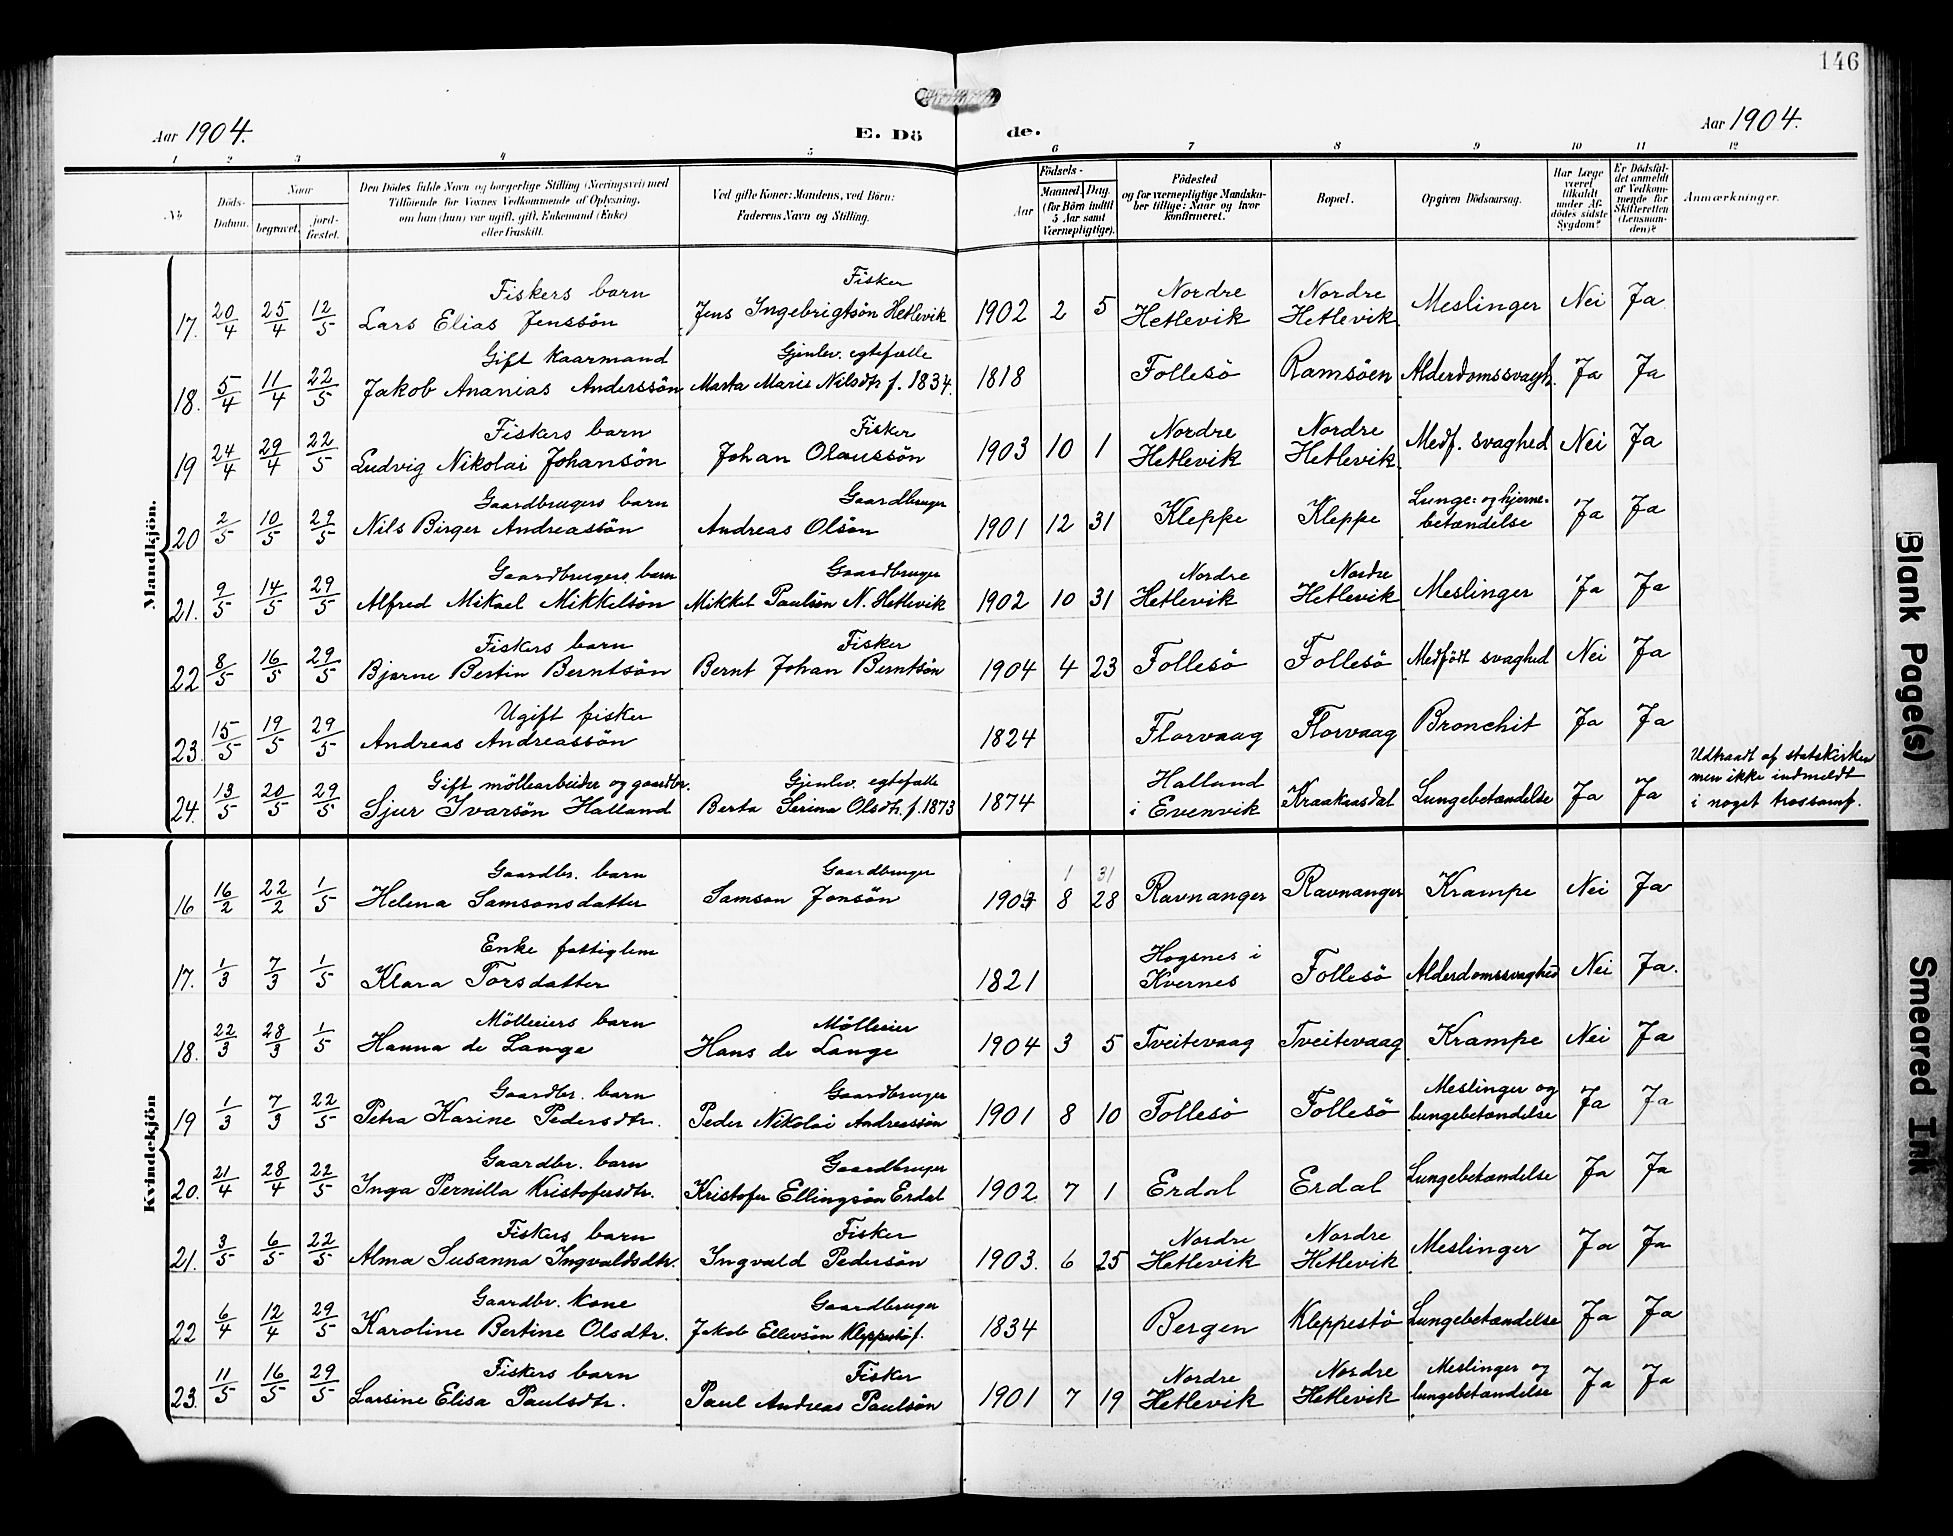 146
Aar 1904.
E. Döde.
Aar 1904.
1 2 3 4 5 6 7 8 9 10 11 12
No
Döds-Datum.
Naar
begravet.
jord-fæstet.
Den Dödes fulde Navn og borgerlige Stilling (Næringsvei) med
Tilföiende for Voxnes Vedkommende af Oplysning,
om han (hun) var ugift, gift, Enkemand (Enke)
eller fraskilt.
Ved gifte Koner: Mandens, ved Börn:
Faderens Navn og Stilling.
Födsels-
Aar
Maaned. Dag.
(for Börn indtil
5 Aar samt
Værnepligtige).
Födested
og for værnepligtige Mandska-
ber tillige: Naar og hvor
konfirmeret.
Bopæl.
Opgiven Dödsaarsag.
Har Læge
været
tilkaldt
under Af-
dödes sidste
Sygdom?
Er Dödsfal-
det anmeldt
af Vedkom-
mende for
Skifteretten
(Lensman-
den)?
Anmærkninger.
Mandkjön.
17. 20/4 25/4 12/5 Fiskers barn Lars Elias Jenssön Fisker Jens Ingebrigtsön Hetlevik 1902 2 5 Nordre Hetlevik Nordre Hetlevik Meslinger Nei Ja
18. 5/4 11/4 22/5 Gift kaarmand Jakob Ananias Anderssön Gjenlev. egtefælle Marta Marie Nilsdtr f. 1834. 1818 Follesö Ramsöen Alderdomssvagh. Ja Ja
19 24/4 29/4 22/5 Fiskers barn Ludvig Nikolai Johansön Fisker Johan Olaussön 1903 10 1 Nordre Hetlevik Nordre Hetlevik Medf. svaghed Nei Ja
20 2/5 10/5 29/5 Gaardbrugers barn Nils Birger Andreassön Gaardbruger Andreas Olsön 1901 12 31 Kleppe Kleppe Lunge- og hjerne-betændelse Ja Ja
21. 9/5 14/5 29/5 Gaardbrugers barn Alfred Mikael Mikkelsön Gaardbruger Mikkel Paulsön N. Hetlevik 1902 10 31 Nordre Hetlevik Nordre Hetlevik Meslinger Ja Ja
22 8/5 16/5 29/5 Fiskers barn Bjarne Bertin Berntsön Fisker Bernt Johan Berntsön 1904 4 23 Follesö Follesö Medfödt svaghed Nei Ja
23. 15/5 19/5 29/5 Ugift fisker Andreas Andreassön 1824 Florvaag Florvaag Bronchit Ja Ja
24. 13/5 20/5 29/5 Gift möllearbeider og gaardbr. Sjur Ivarsön Halland Gjenlev. egtefælle Berta Serina Olsdtr. f. 1873 1874 Halland i Evenvik Kraakaasdal Lungebetændelse Ja Ja Udtraadt af statskirken men ikke indmeldt i noget trossamf.
Kvindekjön
16 16/2 22/2 1/5 Gaardbr. barn Helena Samsonsdatter Gaardbruger Samson Jonsön 1 31 8 28 Ravnanger Ravnanger Krampe Nei Ja
17. 1/3 7/3 1/5 Enke fattiglem Klara Torsdatter 1821 Hogsnes i Kvernes Follesö Alderdomssvaghed Nei Ja.
18. 22/3 28/3 1/5 Mölleeiers barn Hanna de Lange Mölleeier Hans de Lange 1904 3 5 Tveitevaag Tveitevaag Krampe Nei Ja
19 1/3 7/3 22/5 Gaardbr. barn Petra Karine Pedersdtr. Gaardbruger Peder Nikolai Andreassön 1901 8 10 Follesö Follesö Meslinger og lungebetændelse Ja Ja
20. 21/4 28/4 22/5 Gaardbr. barn Inga Pernilla Kristofersdtr. Gaardbruger Kristofer Ellingsön Erdal 1902 7 1 Erdal Erdal Lungebetændelse Ja Ja
21. 3/5 6/5 22/5 Fiskers barn Alma Susanna Ingvaldsdtr. Fisker Ingvald Pedersön 1903. 6 25 Nordre Hetlevik Nordre Hetlevik Meslinger Ja Ja
22 6/4 12/4 29/5 Gaardbr. kone Karoline Bertine Olsdtr. Gaardbruger Jakob Ellevsön 1834 Bergen Kleppestö Lungebetændelse Ja Ja
23. 11/5 16/5 29/5 Fiskers barn Larsine Elisa Paulsdtr. Fisker Paul Andreas Paulsön 1901 7 19 Nordre Hetlevik Nordre Hetlevik Meslinger og lungebetændelse Ja Ja
Blank Page(s)
Smeared Ink